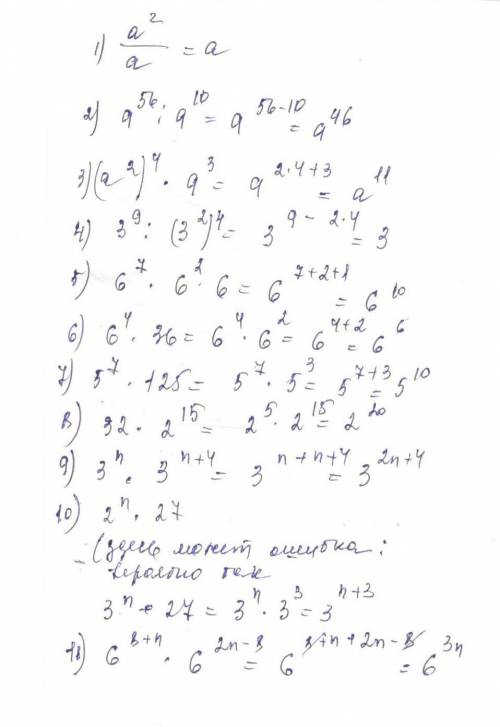 1) a²/a = a
2) a⁵⁶ : a¹⁰ = a⁵⁶⁻¹⁰ = a⁴⁶
3) (a²)⁴ · a³ = a²·⁴⁺³ = a¹¹
4) 3⁹ : (3²)⁴ = 3⁹⁻²·⁴ = 3
5) 6⁷ · 6² · 6 = 6⁷⁺²⁺¹ = 6¹⁰
6) 6⁴ · 36 = 6⁴ · 6² = 6⁴⁺² = 6⁶
7) 5⁷ · 125 = 5⁷ · 5³ = 5⁷⁺³ = 5¹⁰
8) 32 · 2¹⁵ = 2⁵ · 2¹⁵ = 2²⁰
9) 3ⁿ · 3ⁿ⁺⁴ = 3ⁿ⁺ⁿ⁺⁴ = 3²ⁿ⁺⁴
10) 2ⁿ · 27
(здесь может ошибка:
вероятно так
3ⁿ · 27 = 3ⁿ · 3³ = 3ⁿ⁺³
11) 6⁸⁺ⁿ · 6²ⁿ⁻⁸ = 6⁸⁺ⁿ⁺²ⁿ⁻⁸ = 6³ⁿ